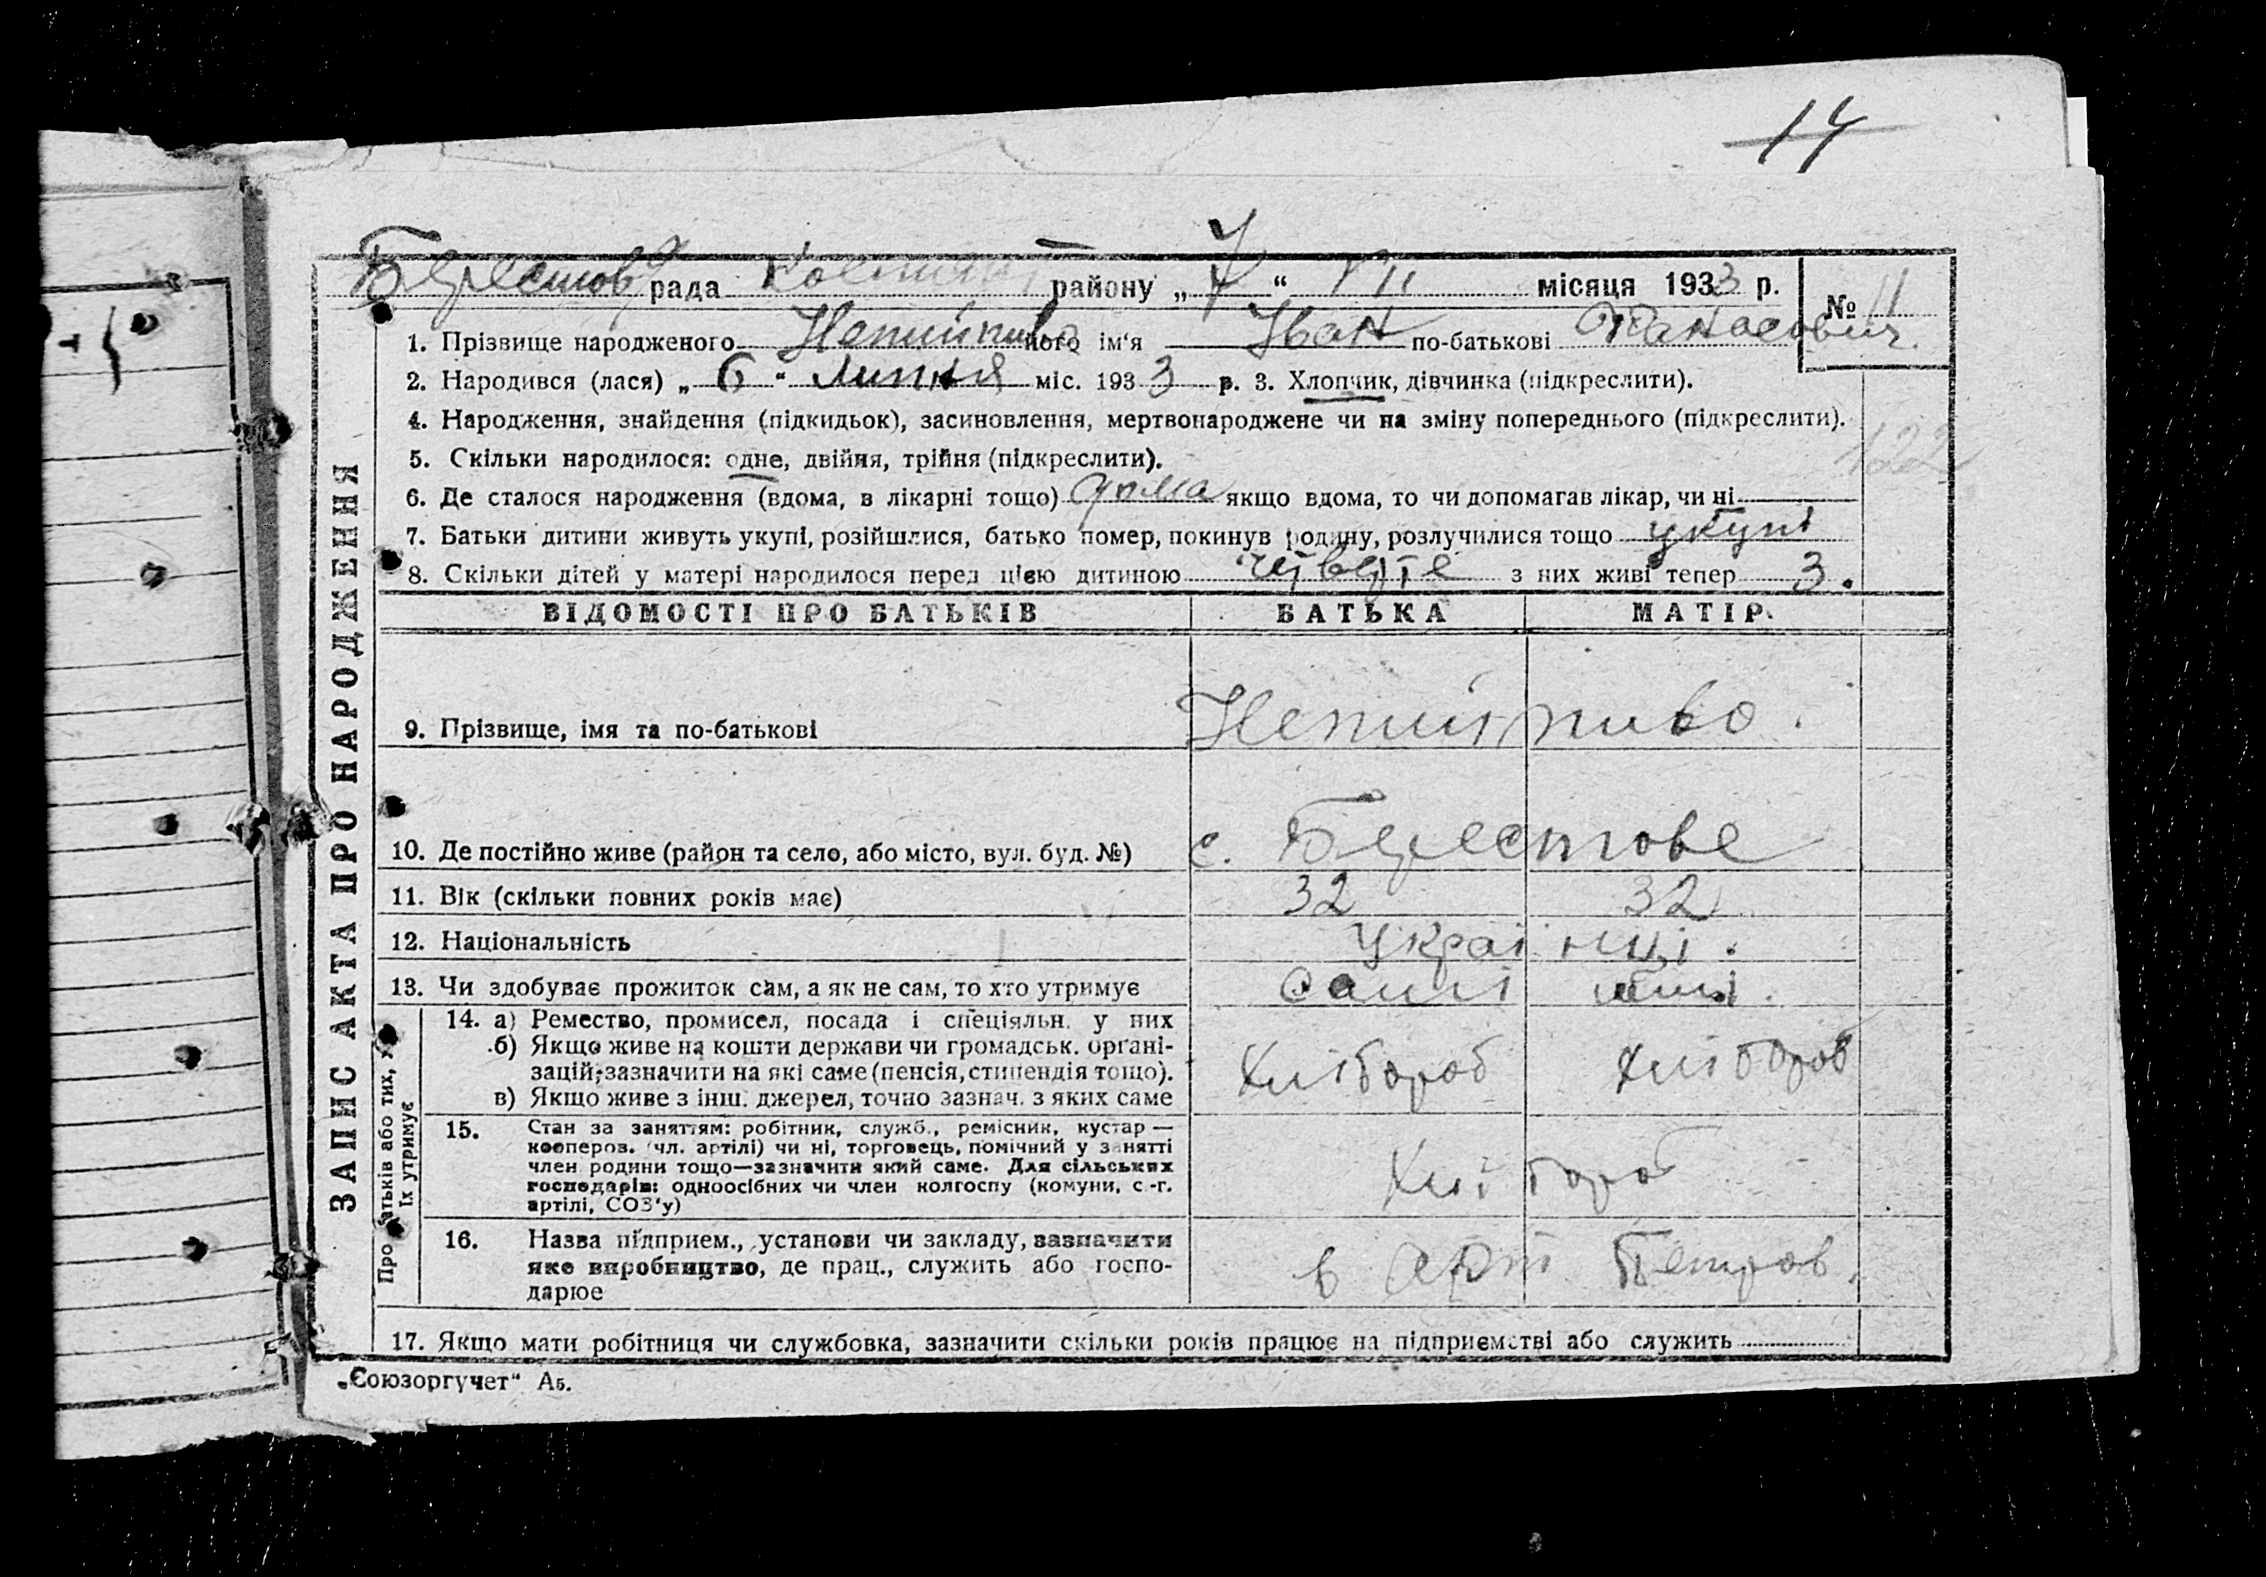 14
Берестов рада району „7“ VII місяця 1933 р. № 11
1. Прізвище народженого Непийпиво його ім'я Іван по-батькові Танасович.
2. Народився (лася) „6“ Липня міс. 1933 р. 3. Хлопчик, дівчинка (підкреслити).
4. Народження, знайдення (підкидьок), засиновлення, мертвонароджене чи на зміну попереднього (підкреслити).
122
5. Скільки народилося: одне, двійня, трійня (підкреслити).
6. Де сталося народження (вдома, в лікарні тощо) дома якщо вдома, то чи допомагав лікар, чи ні
7. Батьки дитини живуть укупі, розійшлися, батько помер, покинув родину, розлучилися тощо укупі
8. Скільки дітей у матері народилося перед цією дитиною четверте з них живі тепер 3.
ВІДОМОСТІ ПРО БАТЬКІВ БАТЬКА МАТІР
9. Прізвище, імя та по-батькові Непийпиво.
10. Де постійно живе (район та село, або місто, вул. буд. №) с. Берестове
11. Вік (скільки повних років має) 32 32
12. Національність Українці.
13. Чи здобуває прожиток сам, а як не сам, то хто утримує Самі
14. а) Ремество, промисел, посада і спеціяльн. у них
б) Якщо живе на кошти держави чи громадськ. органі-
зацій, зазначити на які саме (пенсія, стипендія тощо). Хлібороб Хлібороб
в) Якщо живе з інш. джерел, точно зазнач. з яких саме
15. Стан за заняттям: робітник, служб., ремісник, кустар —
кооперов. (чл. артілі) чи ні, торговець, помічний у занятті
член родини тощо—зазначити який саме. Для сільських
господарів: одноосібних чи член колгоспу (комуни, с.-г.
артілі, СОЗ'у) Хлібороб
16. Назва підприєм., установи чи закладу, зазначити
яке виробництво, де прац., служить або госпо-
дарює в арт Петров.
17. Якщо мати робітниця чи службовка, зазначити скільки років працює на підприємстві або служить
„Союзоргучет“ А5.
ЗАПИС АКТА ПРО НАРОДЖЕННЯ
Про батьків або тих, хто
їх утримує